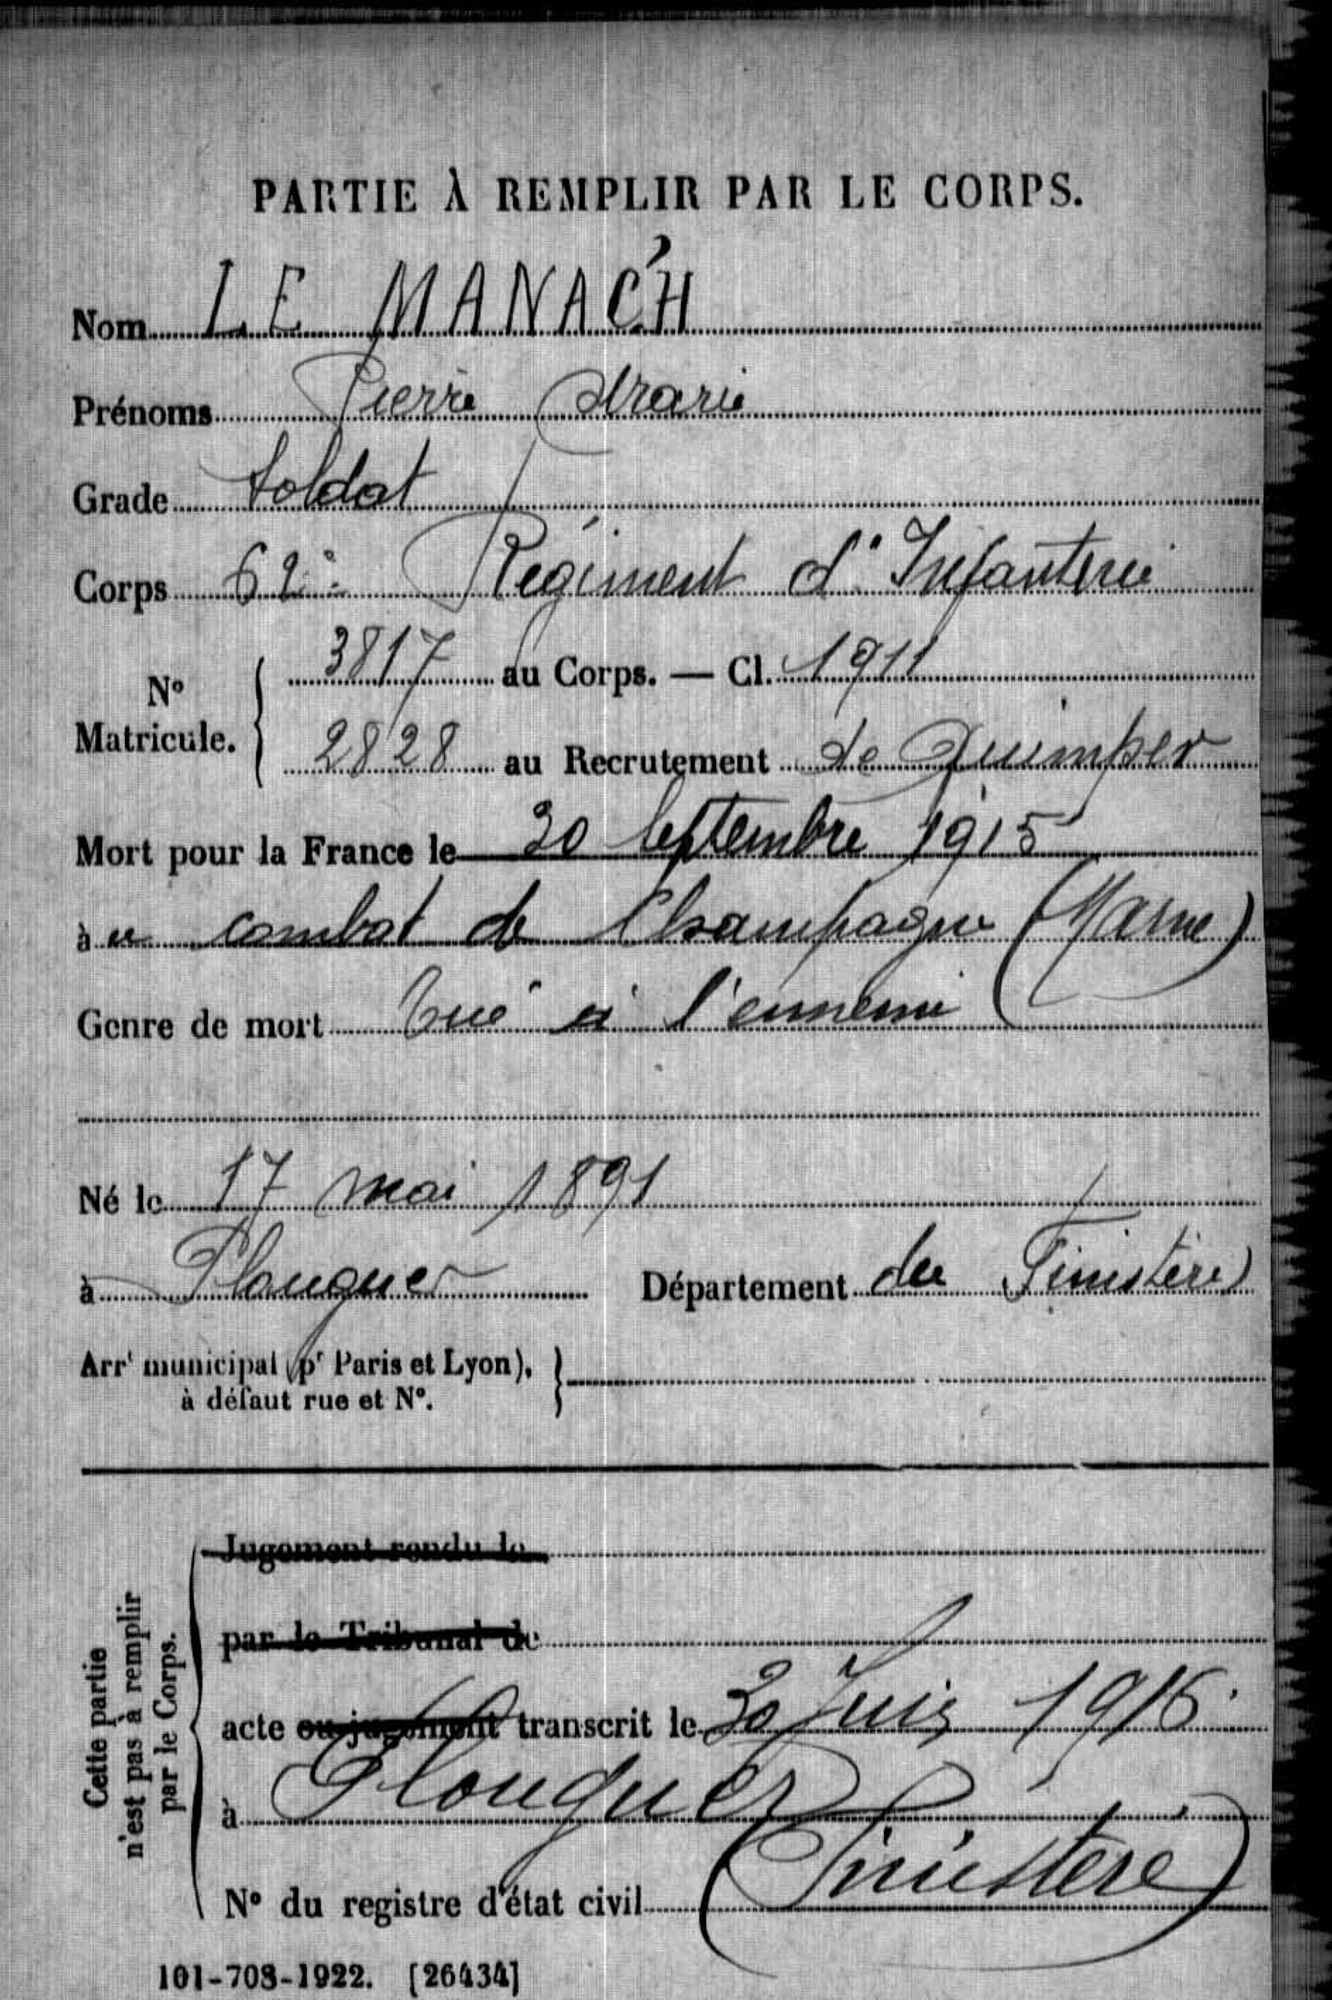 PARTIE À REMPLIR PAR LE CORPS.
Nom LE MANAC'H
Prénoms Pierre Marie
Grade Soldat
Corps 62e Régiment d'Infanterie
N° Matricule. 3817 au Corps. — Cl. 1911
2828 au Recrutement de Quimper
Mort pour la France le 30 Septembre 1915
à u combat de Champagne (Marne)
Genre de mort tué à l'ennemi
Né le 17 mai 1891
à Plouguer Département du Finistère
Arrt municipal (pr Paris et Lyon),
à défaut rue et N°.
Cette partie
n'est pas à remplir
par le Corps.
Jugement rendu le
par le Tribunal de
acte ou jugement transcrit le 30 Juin 1916.
à Plouguer
(Finistère)
N° du registre d'état civil
101-708-1922. [26434]